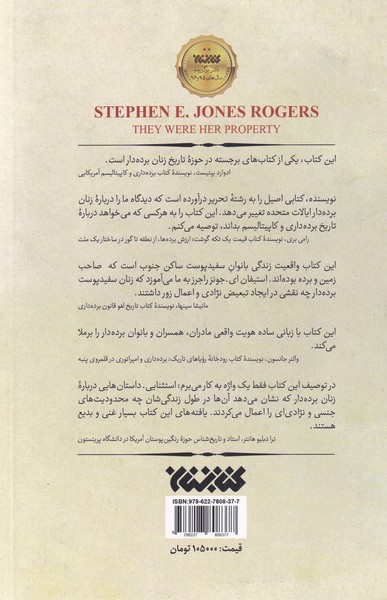 ناشر برگزیده
سال‌های ۹۵ و ۹۶
STEPHEN E. JONES ROGERS
THEY WERE HER PROPERTY
این کتاب، یکی از کتاب‌های برجسته در حوزهٔ تاریخ زنان برده‌دار است.
ادوارد بپتیست، نویسندهٔ کتاب برده‌داری و کاپیتالیسم آمریکایی
نویسنده، کتابی اصیل را به رشتهٔ تحریر درآورده است که دیدگاه ما را دربارهٔ زنان
برده‌دار ایالات متحده تغییر می‌دهد. این کتاب را به هرکسی که می‌خواهد دربارهٔ
تاریخ برده‌داری و کاپیتالیسم بداند، توصیه می‌کنم.
رامی بری، نویسندهٔ کتاب قیمت یک تکه گوشت: ارزش برده‌ها، از نطفه تا گور در ساختار یک ملت
این کتاب واقعیت زندگی بانوان سفیدپوست ساکن جنوب است که صاحب
زمین و برده بوده‌اند. استیفان ای. جونز راجرز به ما می‌آموزد که زنان سفیدپوست
برده‌دار چه نقشی در ایجاد تبعیض نژادی و اعمال زور داشتند.
مانیشا سینها، نویسندهٔ کتاب تاریخ لغو قانون برده‌داری
این کتاب با زبانی ساده هویت واقعی مادران، همسران و بانوان برده‌دار را برملا
می‌کند.
والتر جانسون، نویسندهٔ کتاب رودخانهٔ رؤیاهای تاریک: برده‌داری و امپراتوری در قلمروی پنبه
در توصیف این کتاب فقط یک واژه به کار می‌برم: استثنایی. داستان‌هایی دربارهٔ
زنان برده‌دار که نشان می‌دهد آن‌ها در طول زندگی‌شان چه محدودیت‌های
جنسی و نژادی‌ای را اعمال می‌کردند. یافته‌های این کتاب بسیار غنی و بدیع
هستند.
ترا دبلیو هانتر، استاد و تاریخ‌شناس حوزهٔ رنگین‌پوستان آمریکا در دانشگاه پرینستون
ISBN: 978-622-7808-37-7
9 786227 808377
قیمت: ۱۰۵۰۰۰ تومان